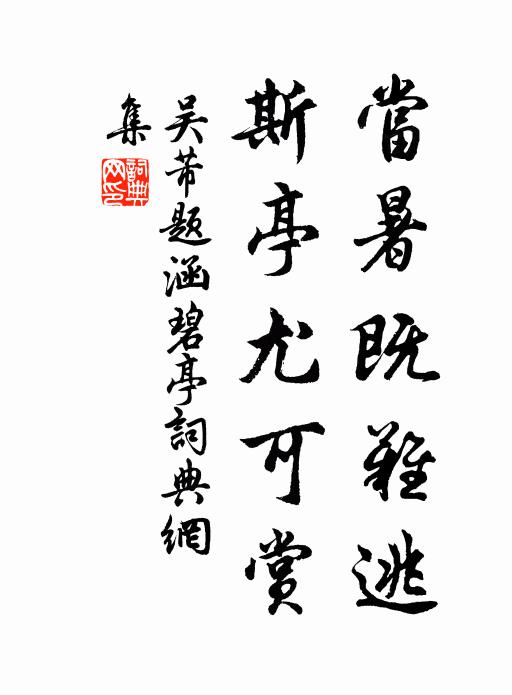 當暑既難逃
斯亭尤可賞
吴芾题涵碧亭詞典網
集
詞典
网印